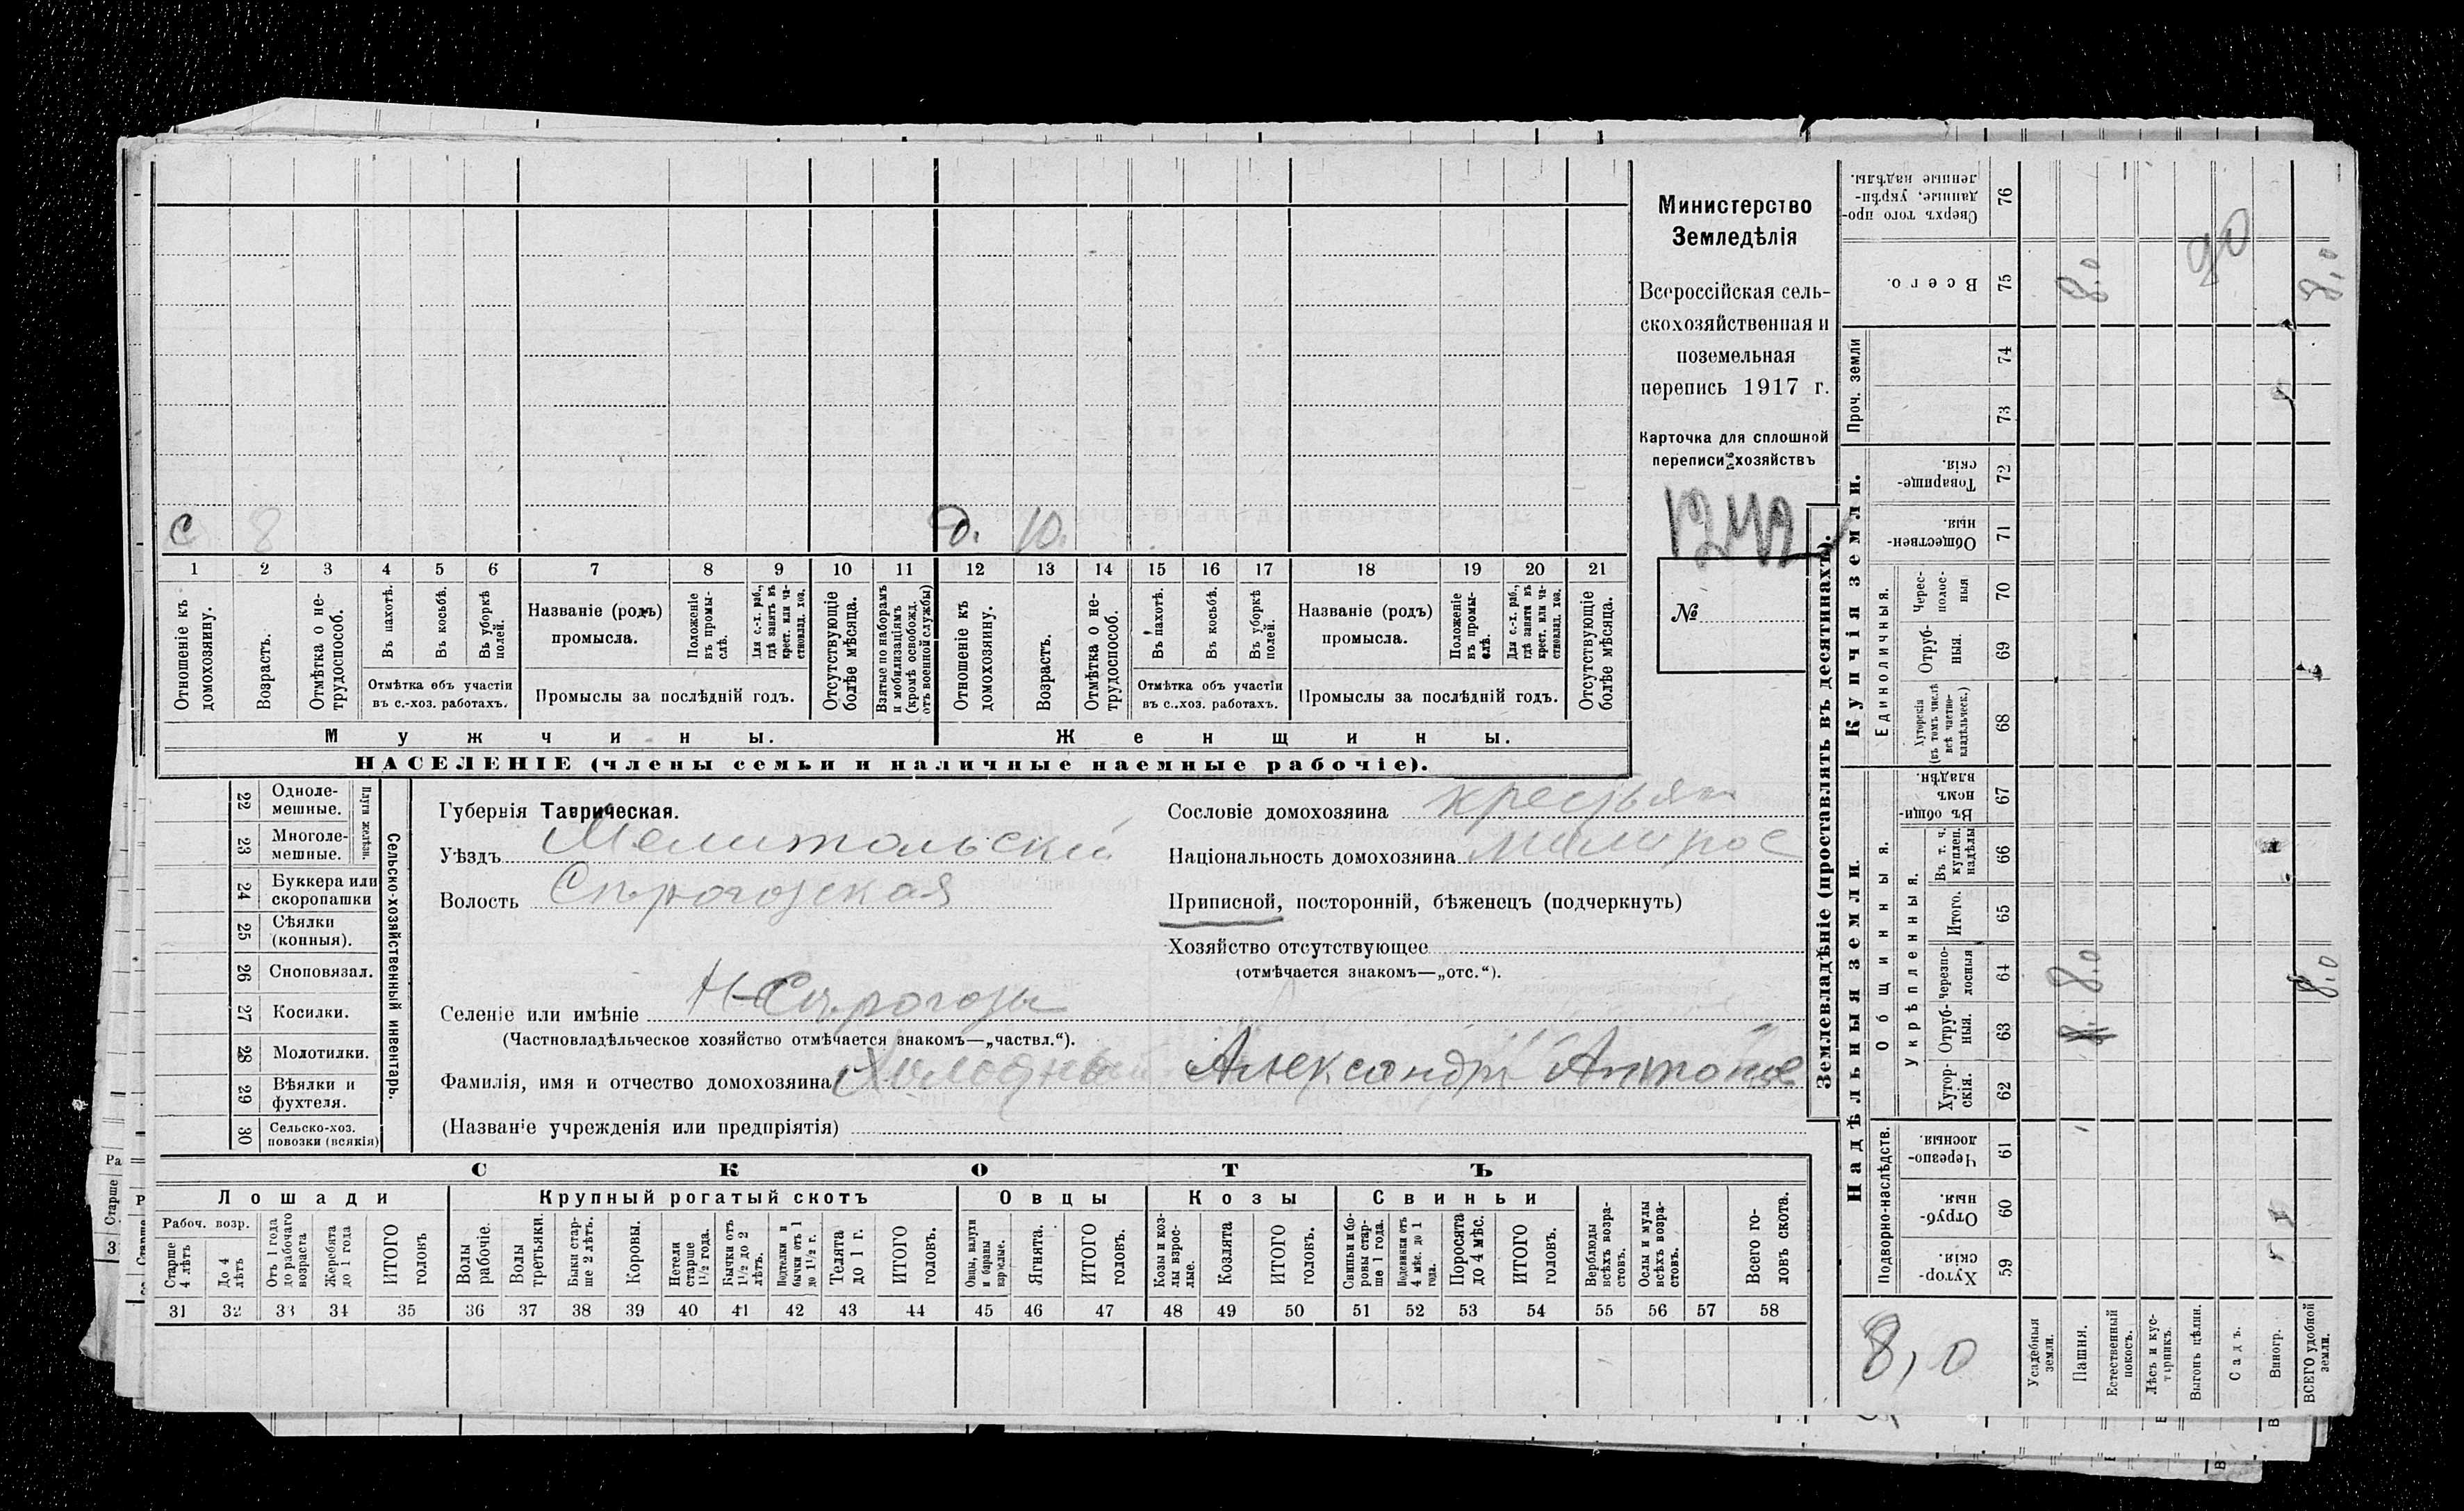 Министерство
Земледѣлія
Всероссійская сель-
скохозяйственная и
поземельная
перепись 1917 г.
Карточка для сплошной
переписи хозяйствъ
1242
№
с 8 д. 10.
1 2 3 4 5 6 7 8 9 10 11 12 13 14 15 16 17 18 19 20 21
Отношеніе къ домохозяину.
Возрастъ.
Отмѣтка о не-трудоспособ.
Въ пахотѣ.
Въ косьбѣ.
Въ уборкѣ полей.
Отмѣтка объ участіи
въ с.-хоз. работахъ.
Названіе (родъ)
промысла.
Положеніе въ промы-слѣ.
Для с.-х. раб., гдѣ занятъ въ крест. или ча-стновлад. хоз.
Промыслы за послѣдній годъ.
Отсутствующіе болѣе мѣсяца.
Взятые по наборамъ и мобилизаціямъ (кромѣ освобожд. отъ военной службы)
Отношеніе къ домохозяину.
Возрастъ.
Отмѣтка о не-трудоспособ.
Въ пахотѣ.
Въ косьбѣ.
Въ уборкѣ полей.
Отмѣтка объ участіи
въ с.-хоз. работахъ.
Названіе (родъ)
промысла.
Положеніе въ промы-слѣ.
Для с.-х. раб., гдѣ занята въ крест. или ча-стновлад. хоз.
Промыслы за послѣдній годъ.
Отсутствующіе болѣе мѣсяца.
Мужчины. Женщины.
НАСЕЛЕНІЕ (члены семьи и наличные наемные рабочіе).
22 Одноле-мешные.
23 Многоле-мешные.
Плуги желѣзн.
24 Буккера или скоропашки
25 Сѣялки (конныя).
26 Сноповязал.
27 Косилки.
28 Молотилки.
29 Вѣялки и фухтеля.
30 Сельско-хоз. повозки (всякія)
Сельско-хозяйственный инвентарь.
Губернія Таврическая.
Уѣздъ Мелитопольскій
Волость
Селеніе или имѣніе
(Частновладѣльческое хозяйство отмѣчается знакомъ—„частвл.“).
Фамилія, имя и отчество домохозяина Холодный Александръ Антонов
(Названіе учрежденія или предпріятія)
Сословіе домохозяина крестьян
Національность домохозяина малорос
Приписной, посторонній, бѣженецъ (подчеркнуть)
Хозяйство отсутствующее
(отмѣчается знакомъ—„отс.“).
СКОТЪ
Лошади Крупный рогатый скотъ Овцы Козы Свиньи
Рабоч. возр.
Старше 4 лѣтъ
До 4 лѣтъ
Отъ 1 года до рабочаго возраста
Жеребята до 1 года
ИТОГО головъ
Волы рабочіе.
Волы третьяки.
Быки стар-ше 2 лѣтъ.
Коровы.
Нетели старше 1½ года.
Бычки отъ 1½ до 2 лѣтъ.
Подтелки и бычки отъ 1 до 1½ г.
Телята до 1 г.
ИТОГО головъ.
Овцы, валухи и бараны взрослые.
Ягнята.
ИТОГО головъ.
Козы и коз-лы взрос-лые.
Козлята
ИТОГО головъ.
Свиньи и бо-ровы стар-ше 1 года.
Подсвинки отъ 4 мѣс. до 1 года.
Поросята до 4 мѣс.
ИТОГО головъ.
Верблюды всѣхъ возра-стовъ.
Ослы и мулы всѣхъ возра-стовъ.
Всего го-ловъ скота.
31 32 33 34 35 36 37 38 39 40 41 42 43 44 45 46 47 48 49 50 51 52 53 54 55 56 57 58
Землевладѣніе (проставлять въ десятинахъ).
Надѣльныя земли. Купчія земли. Проч. земли
Подворно-наслѣдств.
Общинныя.
Укрѣпленныя.
Единоличныя.
Хутор-скія. 59
Отруб-ныя. 60
Черезпо-лосныя. 61
Хутор-скія. 62
Отруб-ныя. 63
Черезпо-лосныя 64
Итого. 65
Въ т. ч. куплен. надѣлы 66
Въ общи-номъ владѣн. 67
Хуторскія (въ томъ числѣ всѣ частно-владѣльческ.) 68
Отруб-ныя. 69
Черес-полос-ныя 70
Обществен-ныя. 71
Товарище-скія. 72
73
74
Всего. 75
Сверхъ того про-данные, укрѣп-ленные надѣлы. 76
8,0
Усадебныя земли.
Пашня. 8,0 8,0
Естественный покосъ.
Лѣсъ и кус-тарникъ.
Выгонъ цѣлин.
Садъ.
Виногр.
ВСЕГО удобной земли. 8,0 8,0